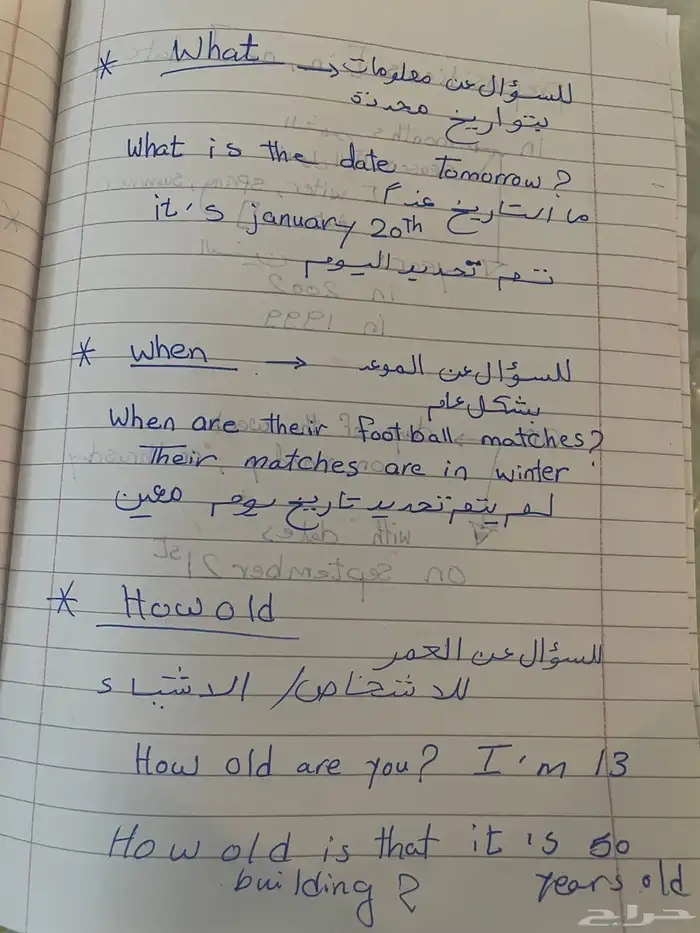 * What → للسؤال عن معلومات
بتواريخ محددة
What is the date Tomorrow?
ما التاريخ غداً؟
it's january 20th
تم تحديد اليوم
* When → للسؤال عن الموعد
بشكل عام
When are their football matches?
Their matches are in winter
لم يتم تحديد تاريخ يوم معين
* How old
للسؤال عن العمر
للاشخاص / الاشياء
How old are you? I'm 13
How old is that it is 50
building? years old
حراج